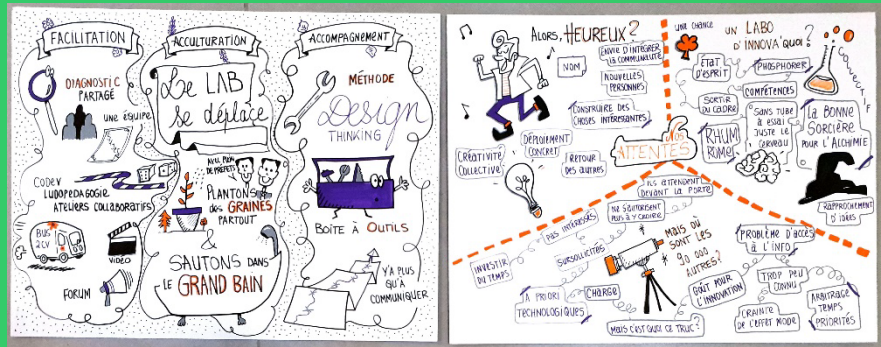 FACILITATION
DIAGNOSTIC
PARTAGÉ
une équipe
CODEV
LUDOPEDAGOGIE
ATELIERS COLLABORATIFS
BUS
2CV
VIDÉO
FORUM
ACCULTURATION
Le LAB
se déplace
AVEC PLEIN
DE PRÉFETS
PLANTONS
des GRAINES
PARTOUT
&
SAUTONS DANS
LE GRAND BAIN
ACCOMPAGNEMENT
MÉTHODE
Design
THINKING
BOÎTE À OUTILS
Y'A PLUS
QU'À
COMMUNIQUER
ALORS, HEUREUX ?
NOM
ENVIE D'INTÉGRER
LA COMMUNAUTÉ
NOUVELLES
PERSONNES
CONSTRUIRE DES
CHOSES INTÉRESSANTES
DÉPLOIEMENT
CONCRET
CRÉATIVITÉ
COLLECTIVE
RETOUR
DES AUTRES
NOS
ATTENTES
une chance
UN LABO
D'INNOVA'QUOI ?
ÉTAT
D'ESPRIT
PHOSPHORER
COMPÉTENCES
SORTIR
DU CADRE
RHUM
POMME
SANS TUBE
À ESSAI
JUSTE LE
CERVEAU
LA BONNE
SORCIÈRE
POUR L'ALCHIMIE
RAPPROCHEMENT
D'IDÉES
MAIS OÙ
SONT LES
90 000
AUTRES ?
ILS ATTENDENT
DEVANT LA PORTE
NE S'AUTORISENT
PAS À Y CROIRE
PAS INTÉRESSÉS
SURSOLLICITÉS
INVESTIR
DU TEMPS
À PRIORI
TECHNOLOGIQUES
CHARGE
MAIS C'EST QUOI CE TRUC ?
GOÛT POUR
L'INNOVATION
PROBLÈME D'ACCÈS
À L'INFO
TROP PEU
CONNU
CRAINTE
DE L'EFFET MODE
ARBITRAGE
TEMPS
PRIORITÉS